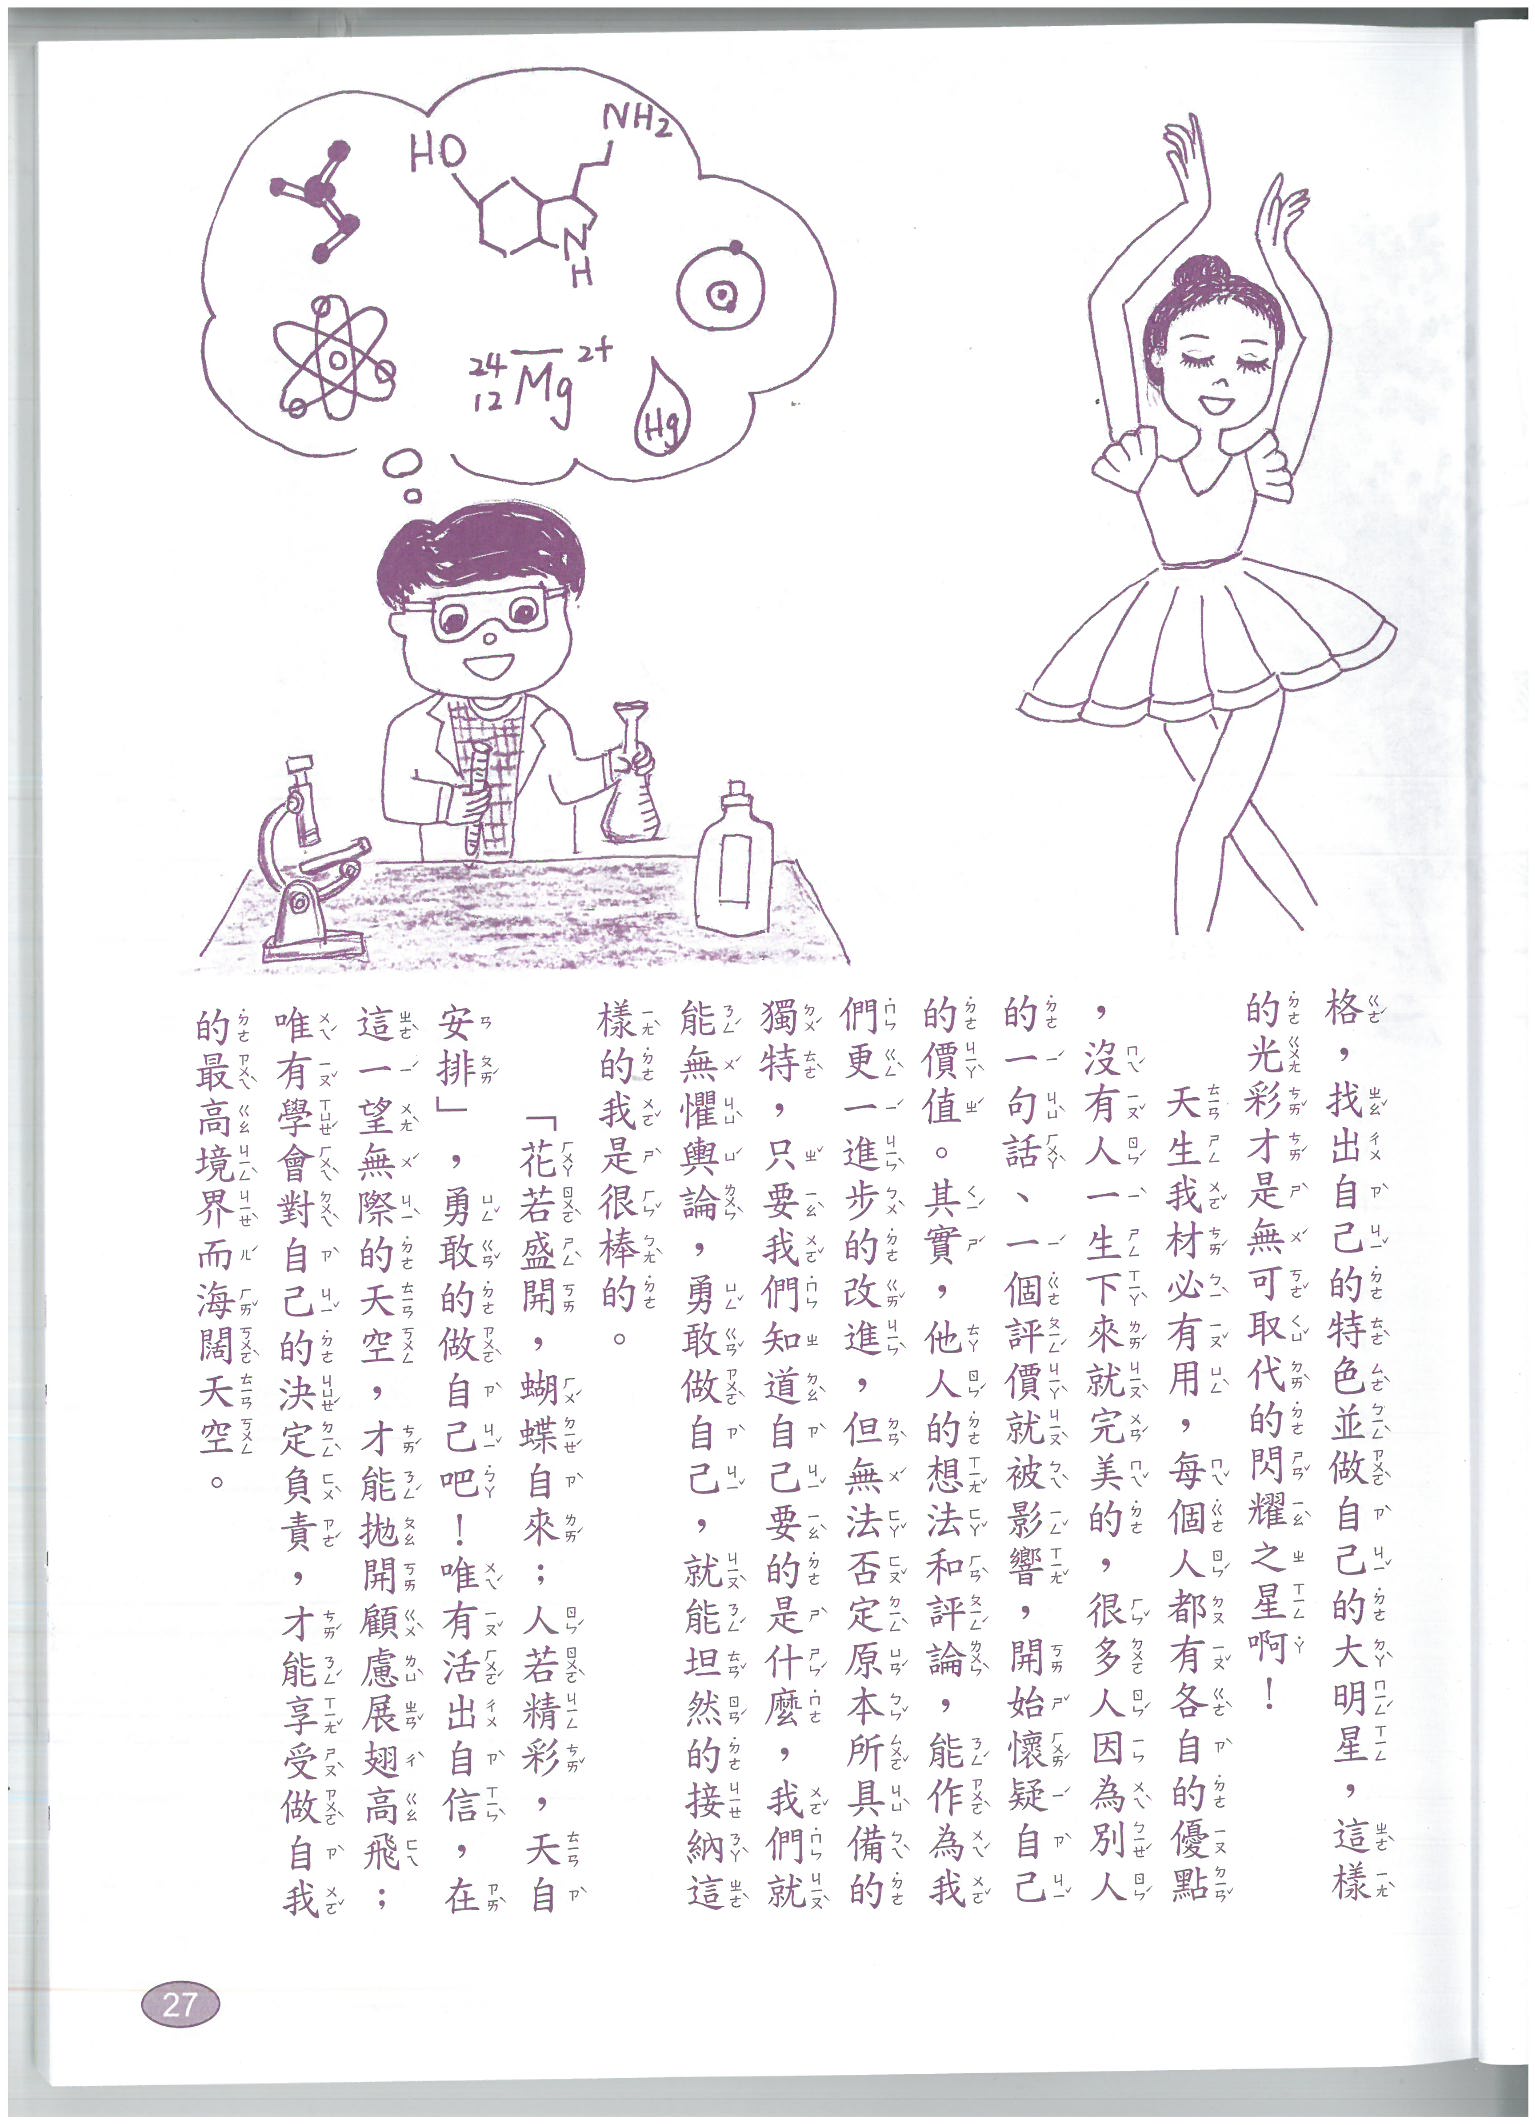 HO
NH2
N
H
24
12
Mg
2+
Hg
格，找出自己的特色並做自己的大明星，這樣
的光彩才是無可取代的閃耀之星啊！
天生我材必有用，每個人都有各自的優點
，沒有人一生下來就完美的，很多人因為別人
的一句話、一個評價就被影響，開始懷疑自己
的價值。其實，他人的想法和評論，能作為我
們更一進步的改進，但無法否定原本所具備的
獨特，只要我們知道自己要的是什麼，我們就
能無懼輿論，勇敢做自己，就能坦然的接納這
樣的我是很棒的。
「花若盛開，蝴蝶自來；人若精彩，天自
安排」，勇敢的做自己吧！唯有活出自信，在
這一望無際的天空，才能拋開顧慮展翅高飛；
唯有學會對自己的決定負責，才能享受做自我
的最高境界而海闊天空。
27